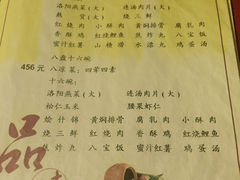 洛阳燕菜(大) 连汤肉片(大)
熬货(大) 烧三鲜
红烧肉 小酥肉 黄焖排骨 腐乳肉
香酥鸡 红烧鲤鱼 焦炸丸 八宝饭
蜜汁红薯 山楂涝 水漂丸 鸡蛋汤
八盘十六碗
456元 八凉菜：四荤四素
十六碗：
洛阳燕菜(大) 连汤肉片(大)
松仁玉米 腰果虾仁
烩什锦 黄焖排骨 腐乳肉 小酥肉
烧三鲜 红烧肉 香酥鸡 红烧鲤鱼
焦炸丸 八宝饭 蜜汁红薯 鸡蛋汤
品